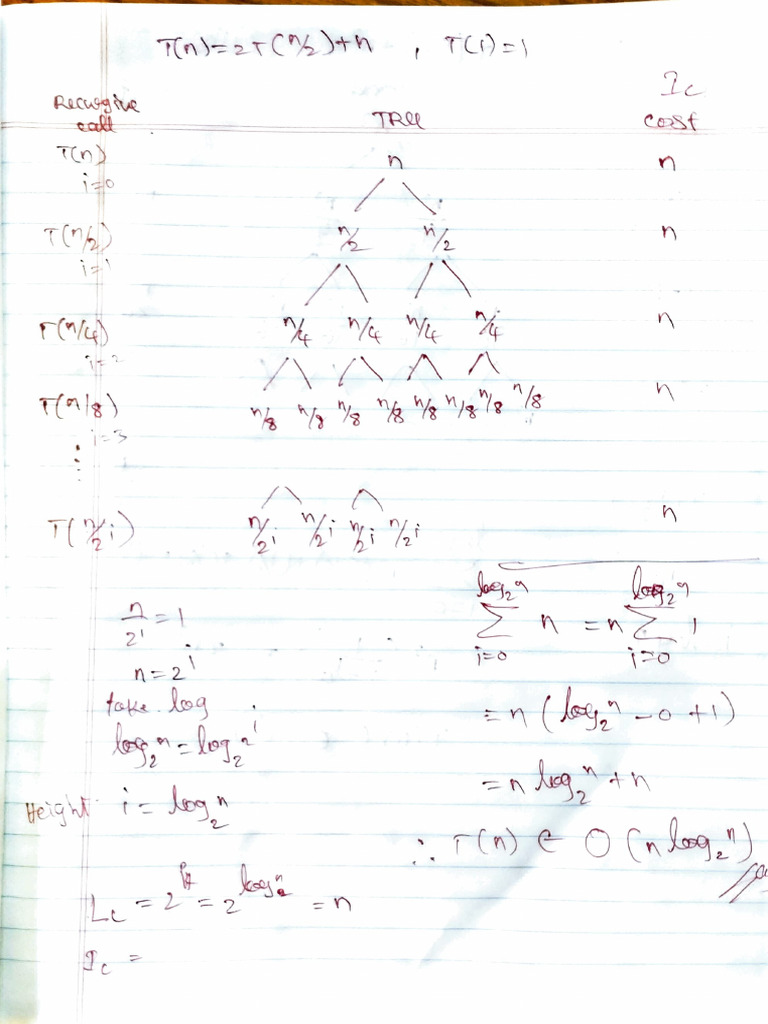 T(n)=2T(n/2)+n , T(1)=1
Ic
Recursive call TREE cost
T(n) n n
i=0
T(n/2) n/2 n/2 n
i=1
T(n/4) n/4 n/4 n/4 n/4 n
i=2
T(n/8) n/8 n/8 n/8 n/8 n/8 n/8 n/8 n/8 n
i=3
⋮
T(n/2^i) n/2^i n/2^i n/2^i n/2^i n
n/2^i = 1
n = 2^i
take log
log₂n = log₂2^i
Height i = log₂n
Lc = 2^i = 2^log₂n = n
Ic =
∑_{i=0}^{log₂n} n = n ∑_{i=0}^{log₂n} 1
= n (log₂n - 0 + 1)
= n log₂n + n
∴ T(n) ∈ O (n log₂n)